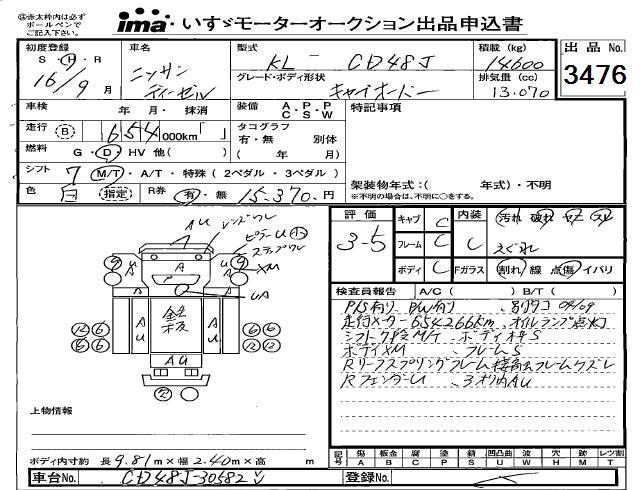 ※赤太枠内は必ず
ボールペンで
ご記入下さい。
ima いすゞモーターオークション出品申込書
初度登録 車名 型式 積載 (kg) 出品 No.
S・H・R ニッサン KL - CD48J 14600 3476
16/9 月 ディーゼル グレード・ボディ形状 排気量 (cc)
キャイオードー 13.070
車検 年 月・抹消 装備 A.P.P C S W 特記事項
走行 (B) 654 000km「 」 タコグラフ
有・無 別体
燃料 G・D・HV 他( ) ( 年 月)
シフト 7 M/T・A/T・特殊 ( 2ペダル・3ペダル )
架装物年式:( 年式)・不明
色 白 指定 R券 有・無 15.370.円 ※不明の場合は、不明に○をする。
評価 キャブ C 内装 汚れ 破れ
3-5 フレーム C C えぐれ
ボディ C Fガラス 割れ 線 点傷 イバリ
レンズワレ
AU
ピラーU
ステップワレ
XM
UA
鉄板
検査員報告 A/C ( ) B/T ( )
P/S有り P/W有り 別タコ 04/09
走行メーター654266km オイルランプ点灯
シフト7速M/T ボディキズS
ボディXM フレームS
Rリーフスプリングフレーム接触フレームケズレ
RフェンダーU 3オリ内AU
上物情報
記号 傷 板金 腐 塗 錆 凹凸曲 波 穴 跡 レツ割
A B C P S U W H M T
ボディ内寸約 長9.81m×幅2.40m×高 m
車台No. CD48J-30582 登録No.